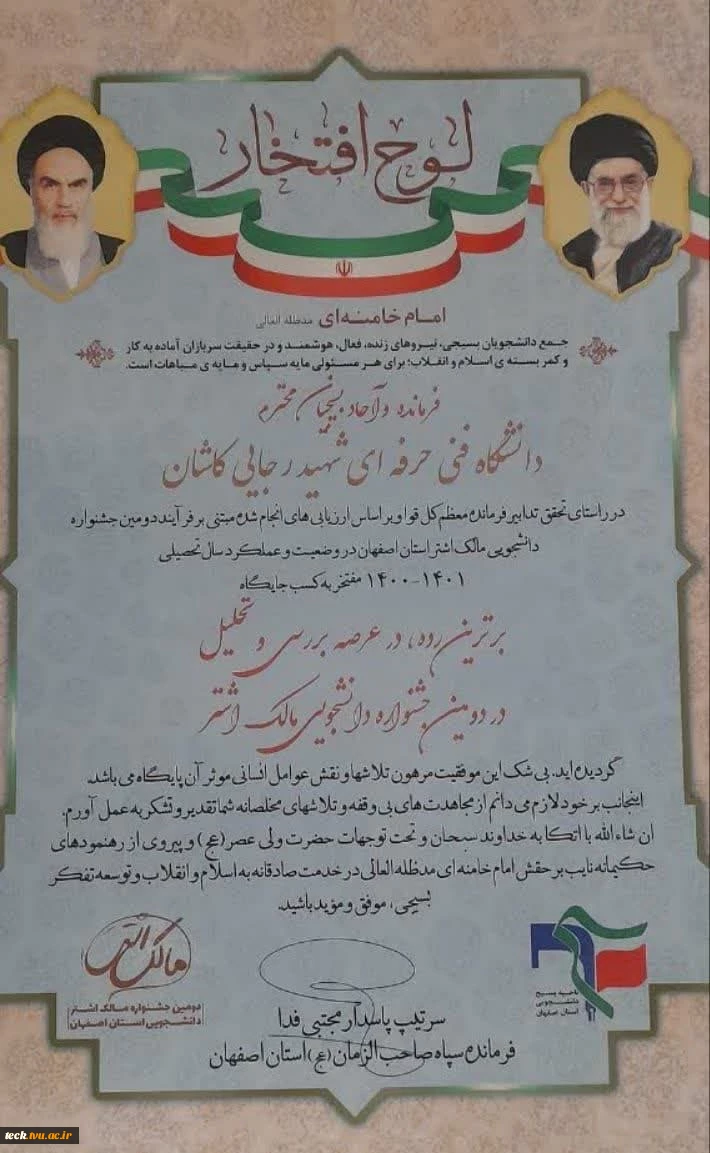 لوح افتخار
امام خامنه‌ای مدظله العالی
جمع دانشجویان بسیجی، نیروهای زنده، فعال، هوشمند و در حقیقت سربازان آماده به کار
و کمر بسته ی اسلام و انقلاب؛ برای هر مسئولی مایه سپاس و مایه ی مباهات است.
فرمانده و آحاد بسیجیان محترم
دانشگاه فنی حرفه ای شهید رجایی کاشان
در راستای تحقق تدابیر فرمانده معظم کل قوا و بر اساس ارزیابی های انجام شده مبتنی بر فرآیند دومین جشنواره
دانشجویی مالک اشتر استان اصفهان در وضعیت و عملکرد سال تحصیلی
۱۴۰۰-۱۴۰۱ مفتخر به کسب جایگاه
برترین رده، در عرصه بررسی و تحلیل
در دومین جشنواره دانشجویی مالک اشتر
گردیده اید. بی شک این موفقیت مرهون تلاشها و نقش عوامل انسانی موثر آن پایگاه می باشد.
اینجانب بر خود لازم می دانم از مجاهدت های بی وقفه و تلاشهای مخلصانه شما تقدیر و تشکر به عمل آورم.
ان شاءالله با اتکا به خداوند سبحان و تحت توجهات حضرت ولی عصر(عج) و پیروی از رهنمودهای
حکیمانه نایب بر حقش امام خامنه ای مدظله العالی در خدمت صادقانه به اسلام و انقلاب و توسعه تفکر
بسیجی، موفق و مؤید باشید.
مالک اشتر
دومین جشنواره مالک اشتر
دانشجویی استان اصفهان
ناحیه بسیج
دانشجویی
استان اصفهان
سرتیپ پاسدار مجتبی فدا
فرمانده سپاه صاحب الزمان(عج) استان اصفهان
teck.tvu.ac.ir